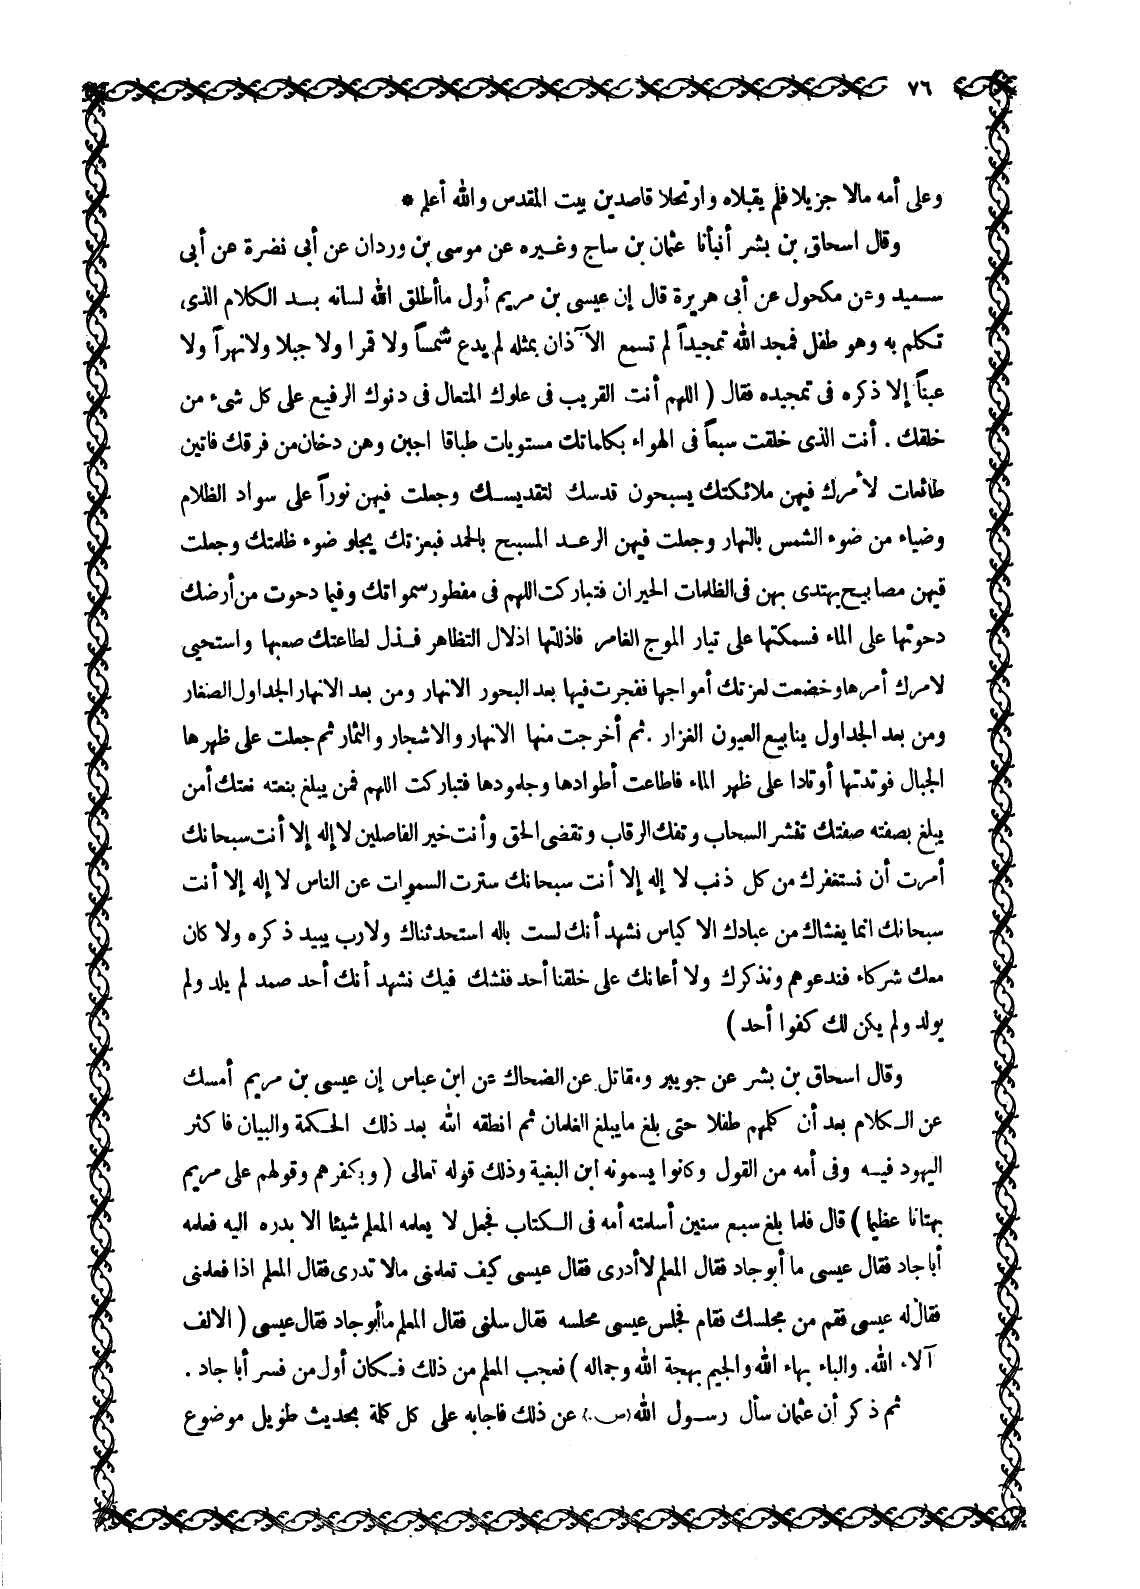 ٧٦
وعلى أمه مالا جزيلا فلم يقبلاه وارتحلا قاصدين بيت المقدس والله أعلم *
وقال اسحاق بن بشر أنبأنا عثمان بن ساج وغيره عن موسى بن وردان عن أبى نضرة عن أبى
سعيد وعن مكحول عن أبى هريرة قال إن عيسى بن مريم أول ما أطلق الله لسانه بعد الكلام الذى
تكلم به وهو طفل فمجد الله تمجيداً لم تسمع الآذان بمثله لم يدع شمساً ولا قمرا ولا جبلا ولا نهراً ولا
عيناً إلا ذكره فى تمجيده فقال ( اللهم أنت القريب فى علوك المتعال فى دنوك الرفيع على كل شىء من
خلقك . أنت الذى خلقت سبعاً فى الهواء بكلماتك مستويات طباقا اجبن وهن دخان من فرقك فاتين
طائعات لأمرك فيهن ملائكتك يسبحون قدسك لتقديسك وجعلت فيهن نوراً على سواد الظلام
وضياء من ضوء الشمس بالنهار وجعلت فيهن الرعد المسبح بالحمد فبعزتك يجلو ضوء ظلمتك وجعلت
فيهن مصابيح يهتدى بهن فى الظلمات الحيران فتباركت اللهم فى مفطور سمواتك وفيما دحوت من أرضك
دحوتها على الماء فسمكتها على تيار الموج الغامر فاذللتها اذلال التظاهر فذل لطاعتك صعبها واستحيى
لامرك أمرها وخضعت لعزتك أمواجها ففجرت فيها بعد البحور الانهار ومن بعد الانهار الجداول الصغار
ومن بعد الجداول ينابيع العيون الغزار . ثم أخرجت منها الانهار والاشجار والثمار ثم جعلت على ظهرها
الجبال فوتدتها أوتادا على ظهر الماء فاطاعت أطوادها وجلمودها فتباركت اللهم فمن يبلغ بنعته نعتك أمن
يبلغ بصفته صفتك تنشر السحاب وتفك الرقاب وتقضى الحق وأنت خير الفاصلين لا إله إلا أنت سبحانك
أمرت أن نستغفرك من كل ذنب لا إله إلا أنت سبحانك سترت السموات عن الناس لا إله إلا أنت
سبحانك انما يغشاك من عبادك الا كياس نشهد أنك لست باله استحدثناك ولا رب يبيد ذكره ولا كان
معك شركاء فندعوهم ونذكرك ولا أعانك على خلقنا أحد فنشك فيك نشهد أنك أحد صمد لم يلد ولم
يولد ولم يكن لك كفوا أحد )
وقال اسحاق بن بشر عن جويبر ومقاتل عن الضحاك عن ابن عباس إن عيسى بن مريم أمسك
عن الكلام بعد أن كلمهم طفلا حتى بلغ ما يبلغ الغلمان ثم انطقه الله بعد ذلك الحكمة والبيان فاكثر
اليهود فيه وفى أمه من القول وكانوا يسمونه ابن البغية وذلك قوله تعالى ( وبكفرهم وقولهم على مريم
بهتانا عظيما ) قال فلما بلغ سبع سنين أسلمته أمه فى الكتاب فجعل لا يعلمه المعلم شيئا الا بدره اليه فعلمه
أبا جاد فقال عيسى ما أبو جاد فقال المعلم لا أدرى فقال عيسى كيف تعلمنى مالا تدرى فقال المعلم اذا فعلمنى
فقال له عيسى فقم من مجلسك فقام فجلس عيسى مجلسه فقال سلنى فقال المعلم ما أبو جاد فقال عيسى ( الالف
آلاء الله. والباء بهاء الله والجيم بهجة الله وجماله ) فعجب المعلم من ذلك فكان أول من فسر أبا جاد .
ثم ذكر أن عثمان سأل رسول الله (س.) عن ذلك فاجابه على كل كلمة بحديث طويل موضوع